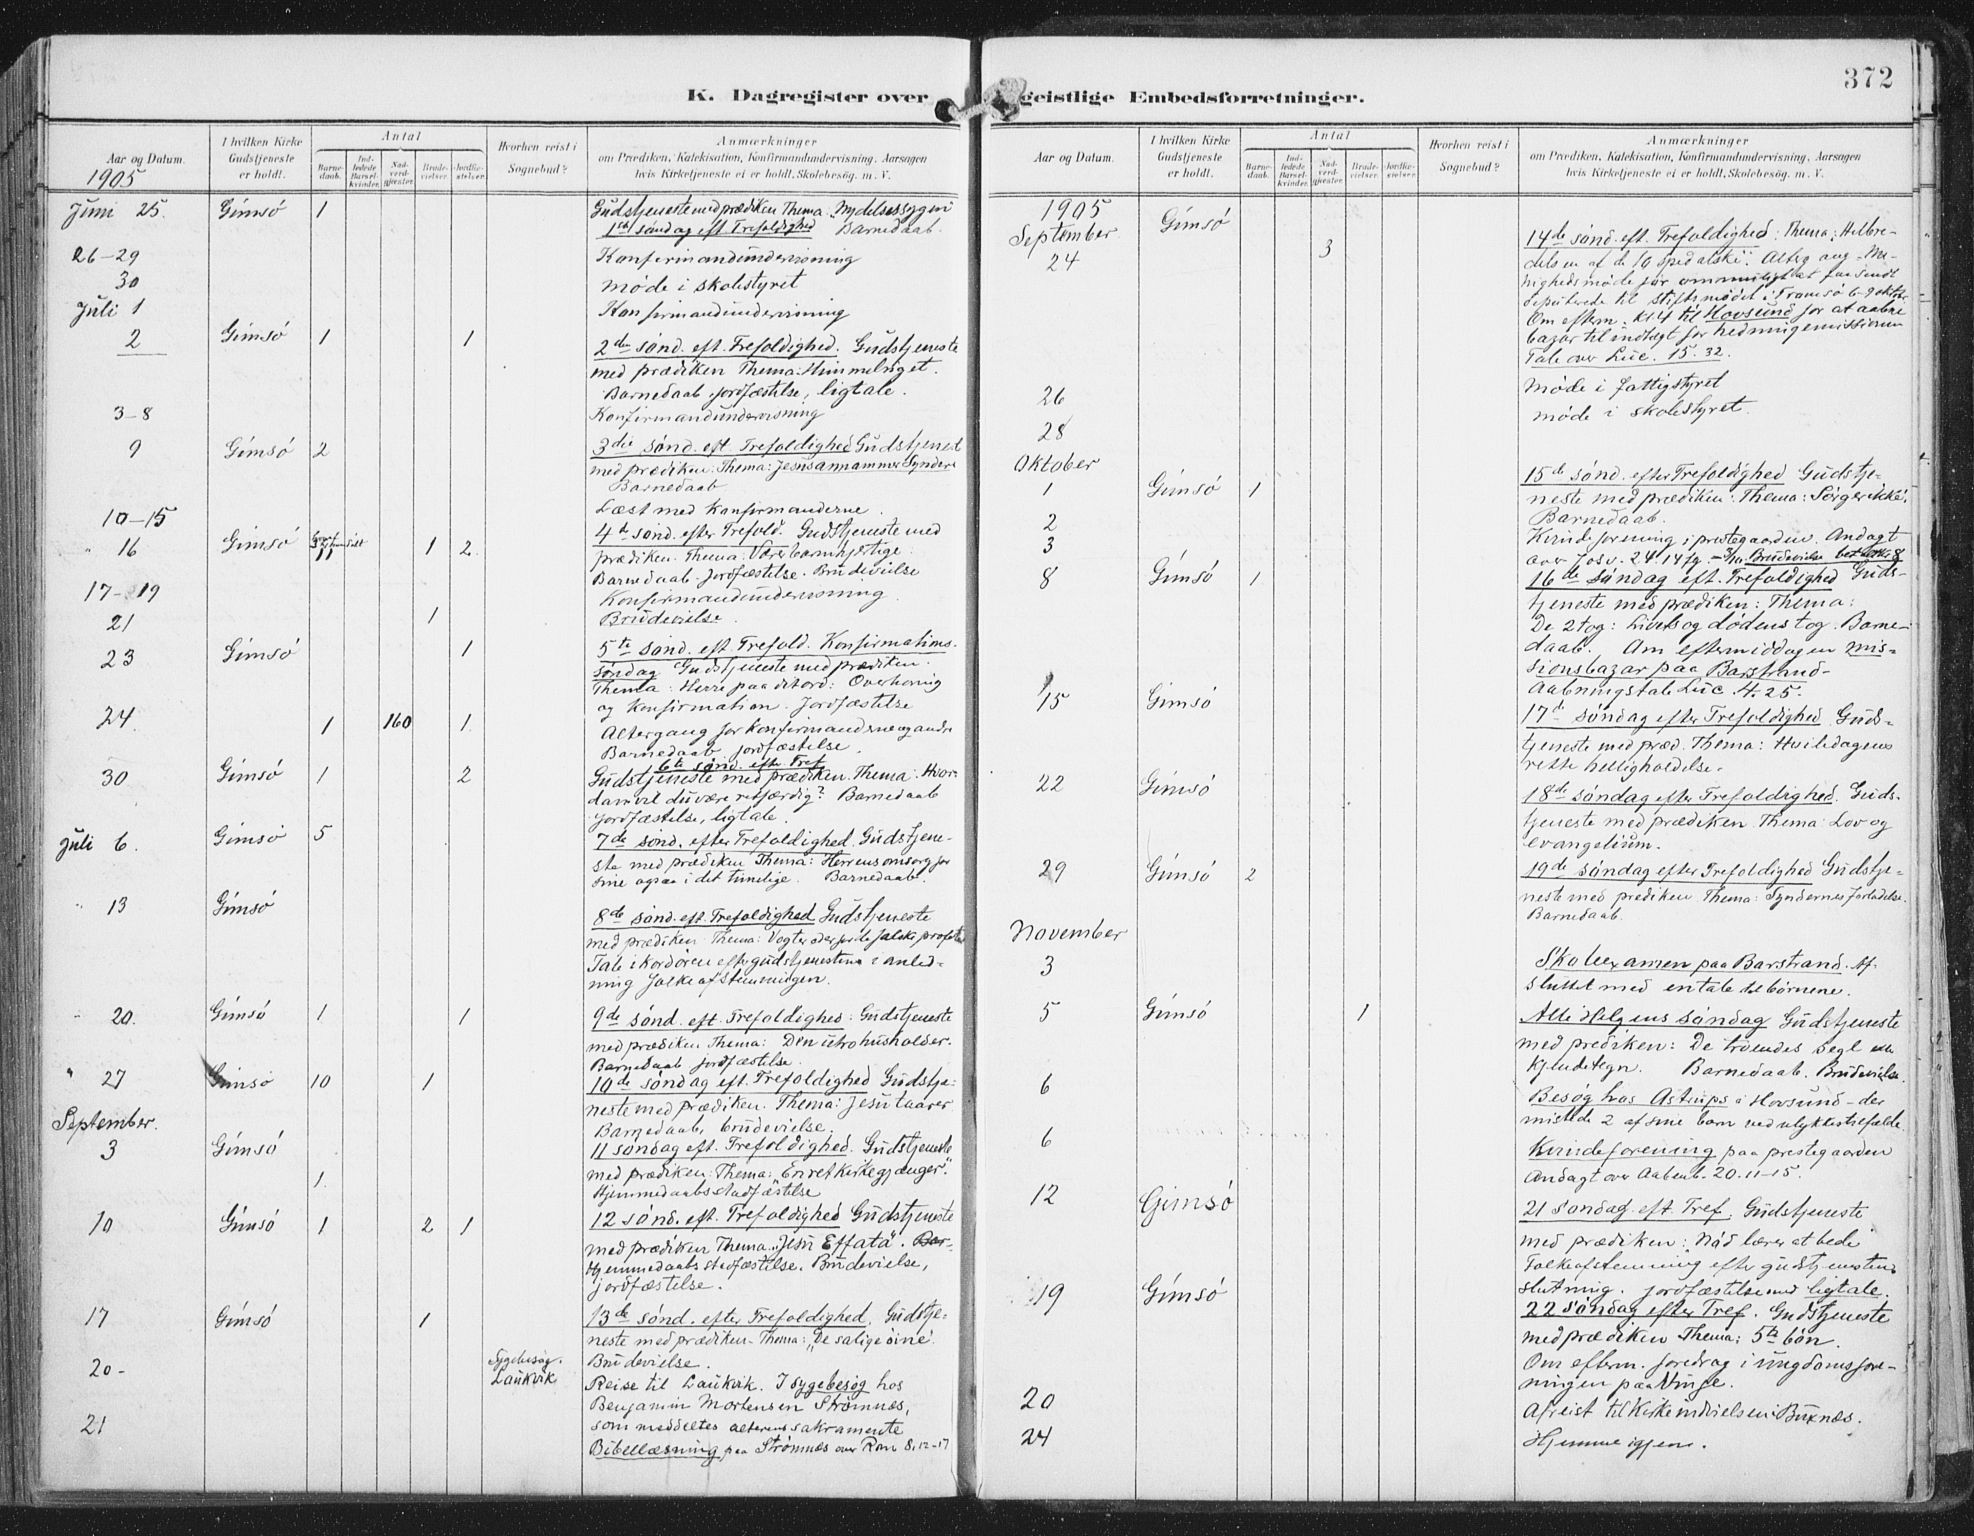 K. Dagregister over geistlige Embedsforretninger.
372
Aar og Datum.
I hvilken Kirke Gudstjeneste er holdt.
Antal
Barnedaab.
Indledede Barselkvinder.
Nadverdgjester.
Brudevielser.
Jordfæstelser.
Hvorhen reist i Sognebud?
Anmærkninger
om Prædiken, Katekisation, Konfirmandundervisning, Aarsagen
hvis Kirketjeneste ei er holdt, Skolebesøg. m. V.
1905
Juni 25. Gimsö 1 Gudstjeneste med prædiken Thema: Nydelsessygen
1ste söndag eft. Trefoldighed Barnedaab.
26-29 Konfirmandundervisning
30 Möde i skolestyret
Juli 1 Konfirmandundervisning
2 Gimsö 1 1 2den sönd. eft. Trefoldighed. Gudstjeneste
med prædiken Thema: Himmelriget.
Barnedaab. jordfæstelse, ligtale.
3-8 Konfirmandundervisning
9 Gimsö 2 3die sönd. eft. Trefoldighed Gudstjenest
med prædiken: Thema: Jesus annammer Syndere
Barnedaab
10-15 Læst med Konfirmanderne.
" 16 Gimsö 11 1 2 4de sönd. efter Trefold. Gudstjeneste med
prædiken. Thema: Være barmhjertige.
Barnedaab. Jordfæstelse. Brudevielse
17-19 Konfirmandundervisning.
21 1 Brudevielse.
23 Gimsö 1 5te sönd. eft. Trefold. Konfirmations-
söndag Gudstjeneste med prædiken.
Thema: Herre paa dit ord: Overhöring
og Konfirmation. Jordfæstelse
24. 1 160 1. Altergang for Konfirmanderne og andre
Barnedaab, jordfæstelse.
6te sönd. efter Tref
30 Gimsö 1 2 Gudstjeneste med prædiken. Thema: Hvor-
dan vil du være retfærdig? Barnedaab
Jordfæstelse, ligtale.
Juli 6. Gimsö 5 7de sönd. efter Trefoldighed. Gudstjene-
ste med prædiken Thema: Herrens omsorg for
sine ogsaa i det timelige. Barnedaab.
" 13 Gimsö 8de sönd. eft. Trefoldighed Gudstjeneste
med prædiken. Thema: Vogter eder for de falske profeter
Tale i kordören efter gudstjenesten i anled-
ning folkeafstemningen.
" 20. Gimsö 1 1 9de sönd. eft. Trefoldighed: Gudstjeneste
med prædiken Thema: Den utro husholder.
Barnedaab jordfæstelse.
" 27 Gimsö 10 1 10de söndag eft. Trefoldighed Gudstje-
neste med prædiken. Thema: Jesu taarer
Barnedaab, brudevielse.
September.
3 Gimsö 11 söndag eft. Trefoldighed. Gudstjeneste
1. med prædiken: Thema: En ret kirkegjænger".
Hjemmedaabsstadfæstelse
10 Gimsö 1 2 1 12 sönd. eft. Trefoldighed Gudstjeneste
med prædiken Thema "Jesu Effata". Bar-
Hjemmedaabsstadfæstelse. Brudevielse,
jordfæstelse.
17 Gimsö 1 13de sönd. efter Trefoldighed. Gudstje-
neste med prædiken. Thema: "De salige öine".
Brudevielse.
20- Sygebesøg. Laukvik Reise til Laukvik. I sygebesøg hos
Benjamin Mortensen Strömnæs,
21 som meddeltes alterens sakramente
Bibellæsning paa Strömnæs over Rom 8, 12-17
Aar og Datum.
I hvilken Kirke Gudstjeneste er holdt.
Antal
Barnedaab.
Indledede Barselkvinder.
Nadverdgjester.
Brudevielser.
Jordfæstelser.
Hvorhen reist i Sognebud?
Anmærkninger
om Prædiken, Katekisation, Konfirmandundervisning, Aarsagen
hvis Kirketjeneste ei er holdt, Skolebesøg. m. V.
1905
September Gimsö 14de sönd. eft. Trefoldighed: Thema: Helbre-
24 3 delsen af de 10 spedalske". Alterg. ang. Me-
nighedsmöde for at faa sendt
deputerede til stiftsmödet i Tromsö 6-9 oktbr.
Om efterm. kl 4 til Hovsund for at aabne
bazar til indtægt for hedningemissionen
Tale over Luc. 15. 32.
26 Möde i fattigstyret
28 möde i skolestyret.
Oktober
1 Gimsö 1 15de sönd. efter Trefoldighed Gudstje-
neste med prædiken: Thema: Sörger ikke!
2 Barnedaab.
3 Kvindeforening i prestegaarden. Andagt
over Josv. 24. 14 fg. Brudevielse
8 Gimsö 1 16de söndag eft. Trefoldighed Guds-
tjeneste med prædiken: Thema:
De 2 tog: Livets og dödens tog. Barne-
daab. Om eftermiddagen mis-
sionsbazar paa Barstrand-
Aabningstale Luc 4. 25.
15 Gimsö 17de söndag efter Trefoldighed Guds-
tjeneste med præd. Thema: Hviledagens
rette helligholdelse.
22 Gimsö 18de söndag efter Trefoldighed. Guds-
tjeneste med prædiken Thema: Lov og
evangelium.
29 Gimsö 2 19de söndag efter Trefoldighed Gudstje-
neste med prediken Thema: Syndernes forladelse.
Barnedaab.
November
3 Skoleexamen paa Barstrand. Af-
sluttet med en tale til börnene.
5 Gimsö 1 Alle Helgens söndag Gudstjeneste
med prediken: De troendes segl
kjendetegn. Barnedaab. Brudevielse.
6 Besög hos Astrups i Hovsund - der
mistede 2 af sine barn ved ulykkestilfælde
6 Kvindeforening paa prestegaarden
Andagt over Aabenb. 20. 11-15.
12 Gimsö 21 söndag eft. Tref. Gudstjeneste
med prædiken: "Nöd lærer at bede
Folkeafstemning efter gudstjenestens
slutning. jordfæstelse med ligtale.
19 Gimsö 22 söndag efter Tref. Gudstjeneste
med prædiken Thema: 5te bön.
Om efterm. foredrag i ungdomsfore-
ningen paa Vinje.
20 Afreist til Kirkeindvielsen i Buxnæs.
24 Hjemme igjen.